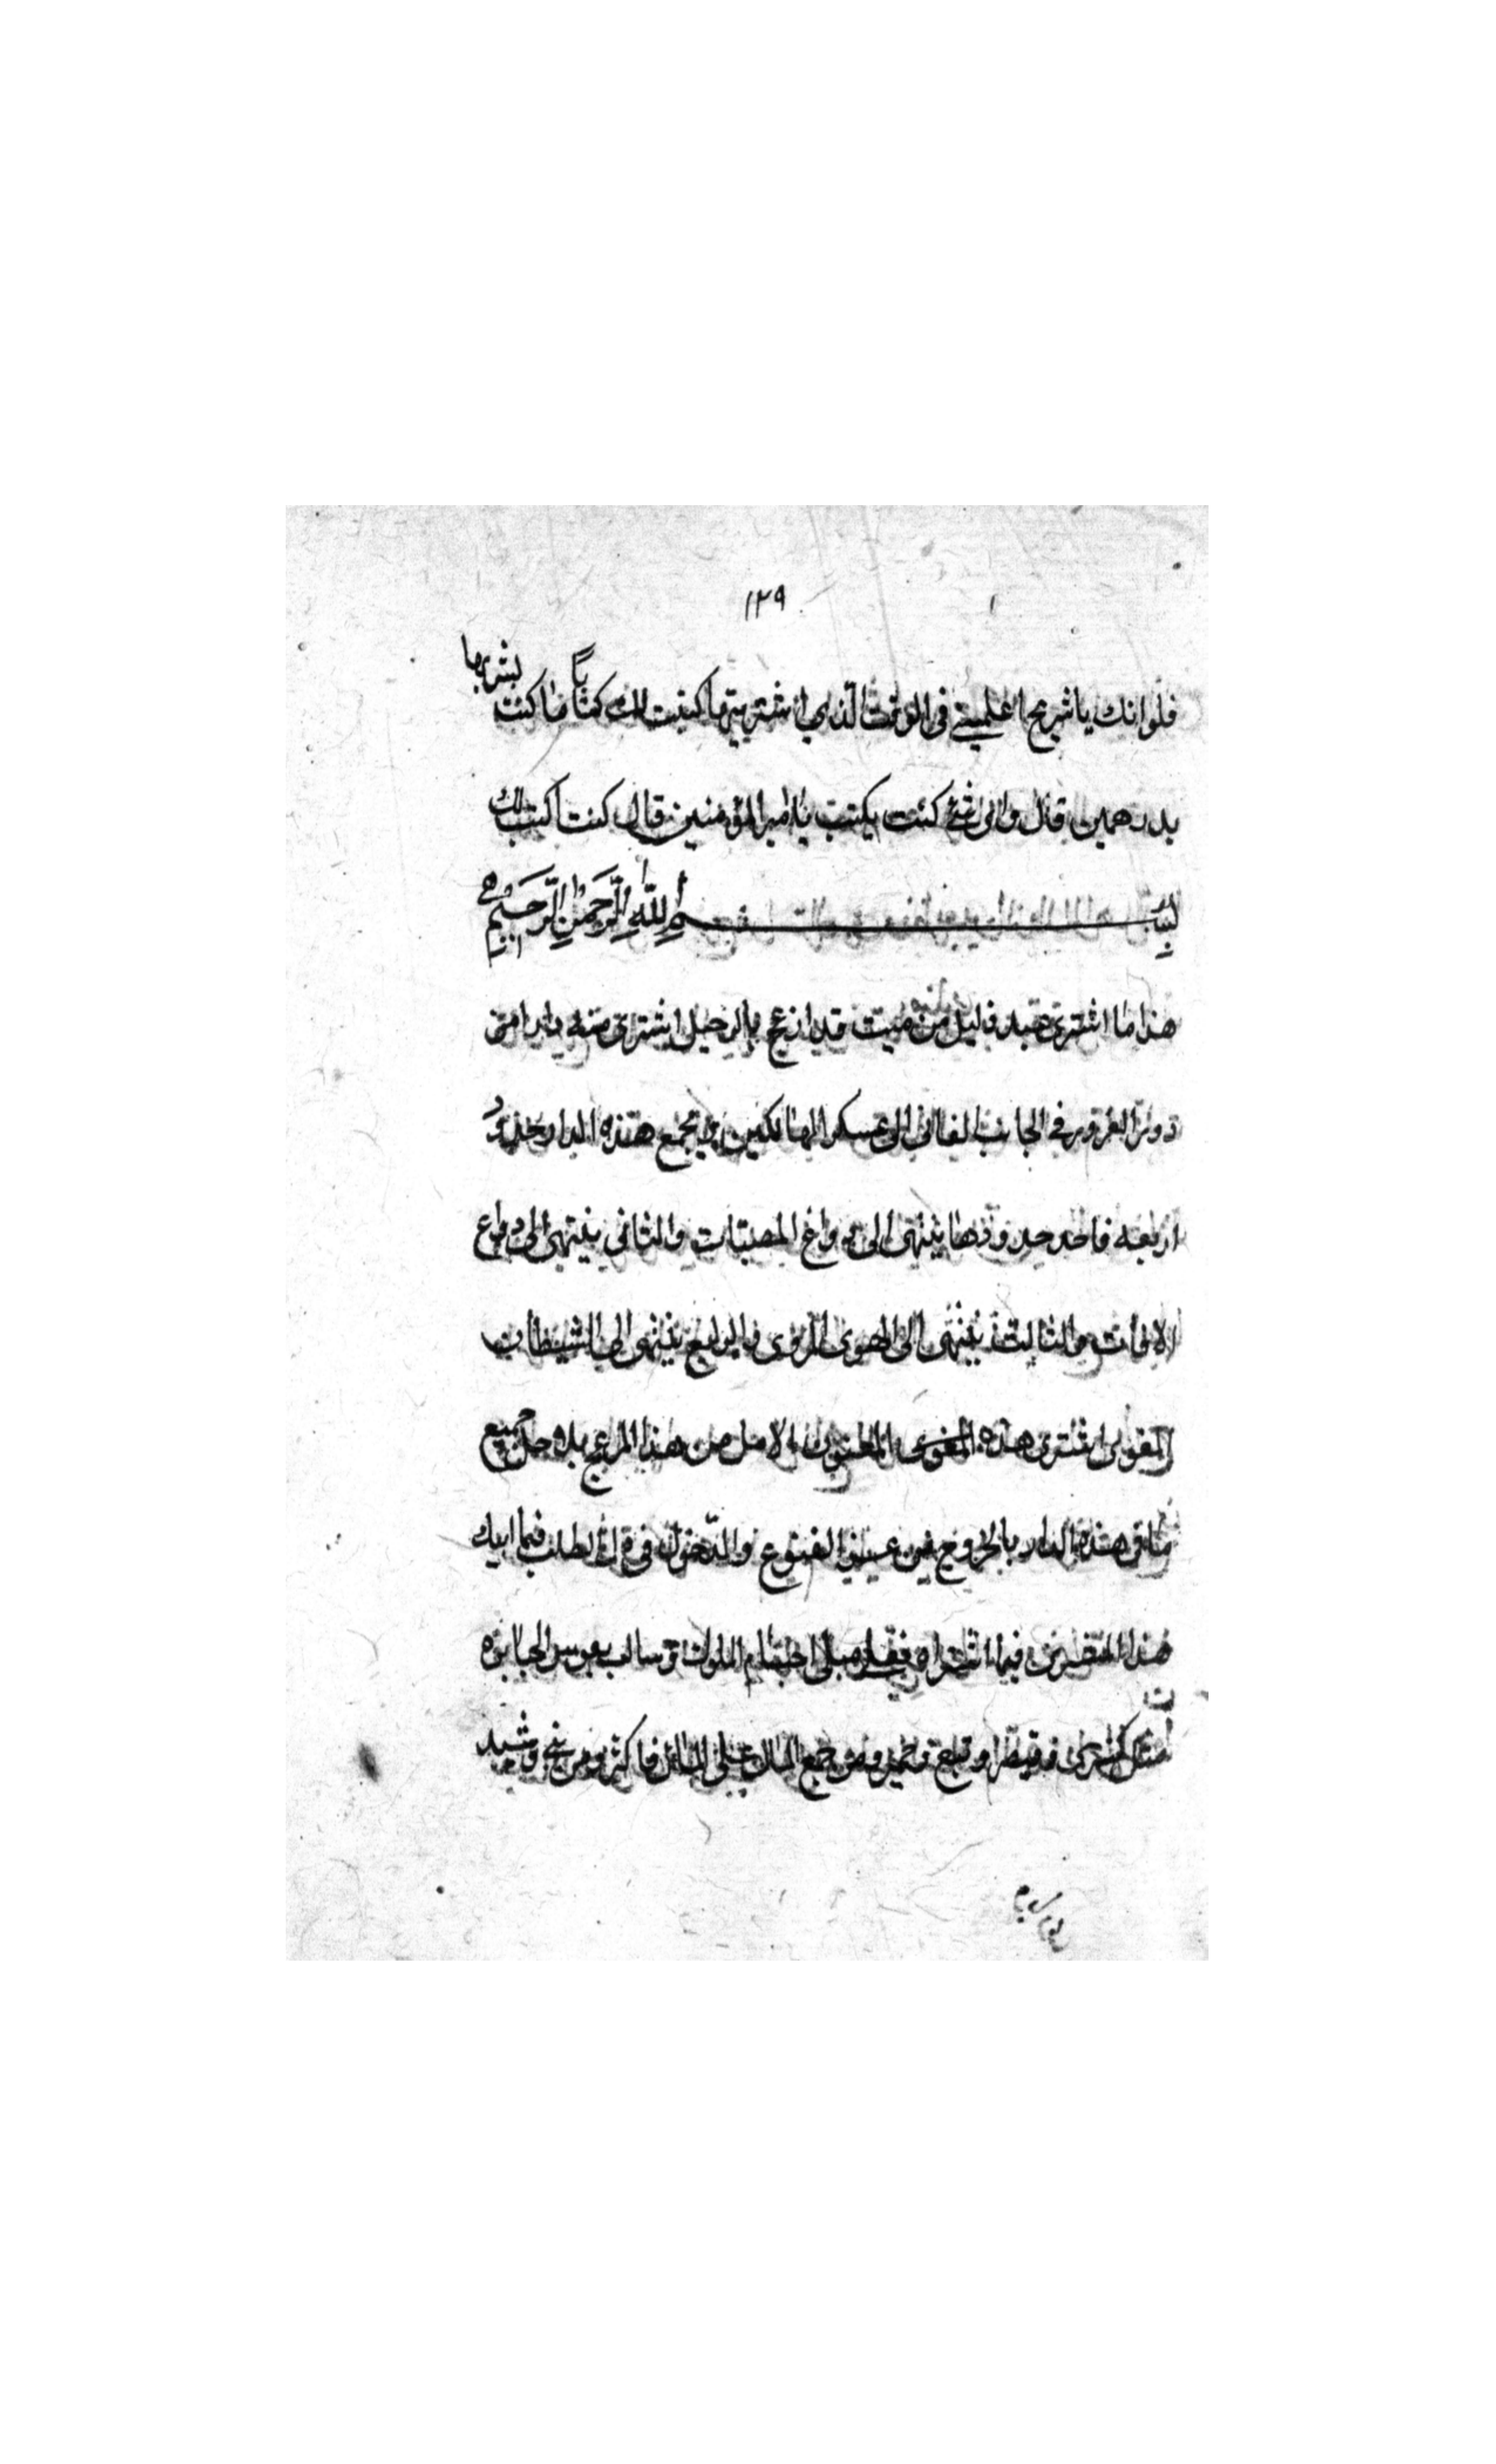 ١٢٩
فلوانك ياشريح اعلمتني فى الوقت الذي اشتريتها كتبت لك كتاباً ما كنت بشربها
بدرهمين قال واى شئ كنت يكتب يا اميرالمؤمنين قال كنت اكتب لك
بسم الله الرحمن الرحيم
هذا ما اشترى عبد ذليل من ميت قد ازعج بالرحيل اشترى منه دارا من
دور الغرور فى الجانب الفانى الى عسكر الهالكين تجمع هذه الدار حدود
اربعه فاحد حدودها ينتهى الى دواع المصيبات والثانى ينتهى الى دواع
الافات والثالث ينتهى الى الهوى المردى والرابع ينتهى الى الشيطان
المغوى اشترى هذه المفتون بالامل من هذا المزعج بلاجل جميع
ما فى هذه الدار بالخروج من عز القنوع والدخول فى ذل الطلب فما
هذا المشترى فيما اشتراه فعلى مبلى اجسام الملوك وسالب نفوس الجبابره
مثل كسرى وقيصر وتبع وحمير ومن جمع المال على المال فاكثر ومن بنى وشيد